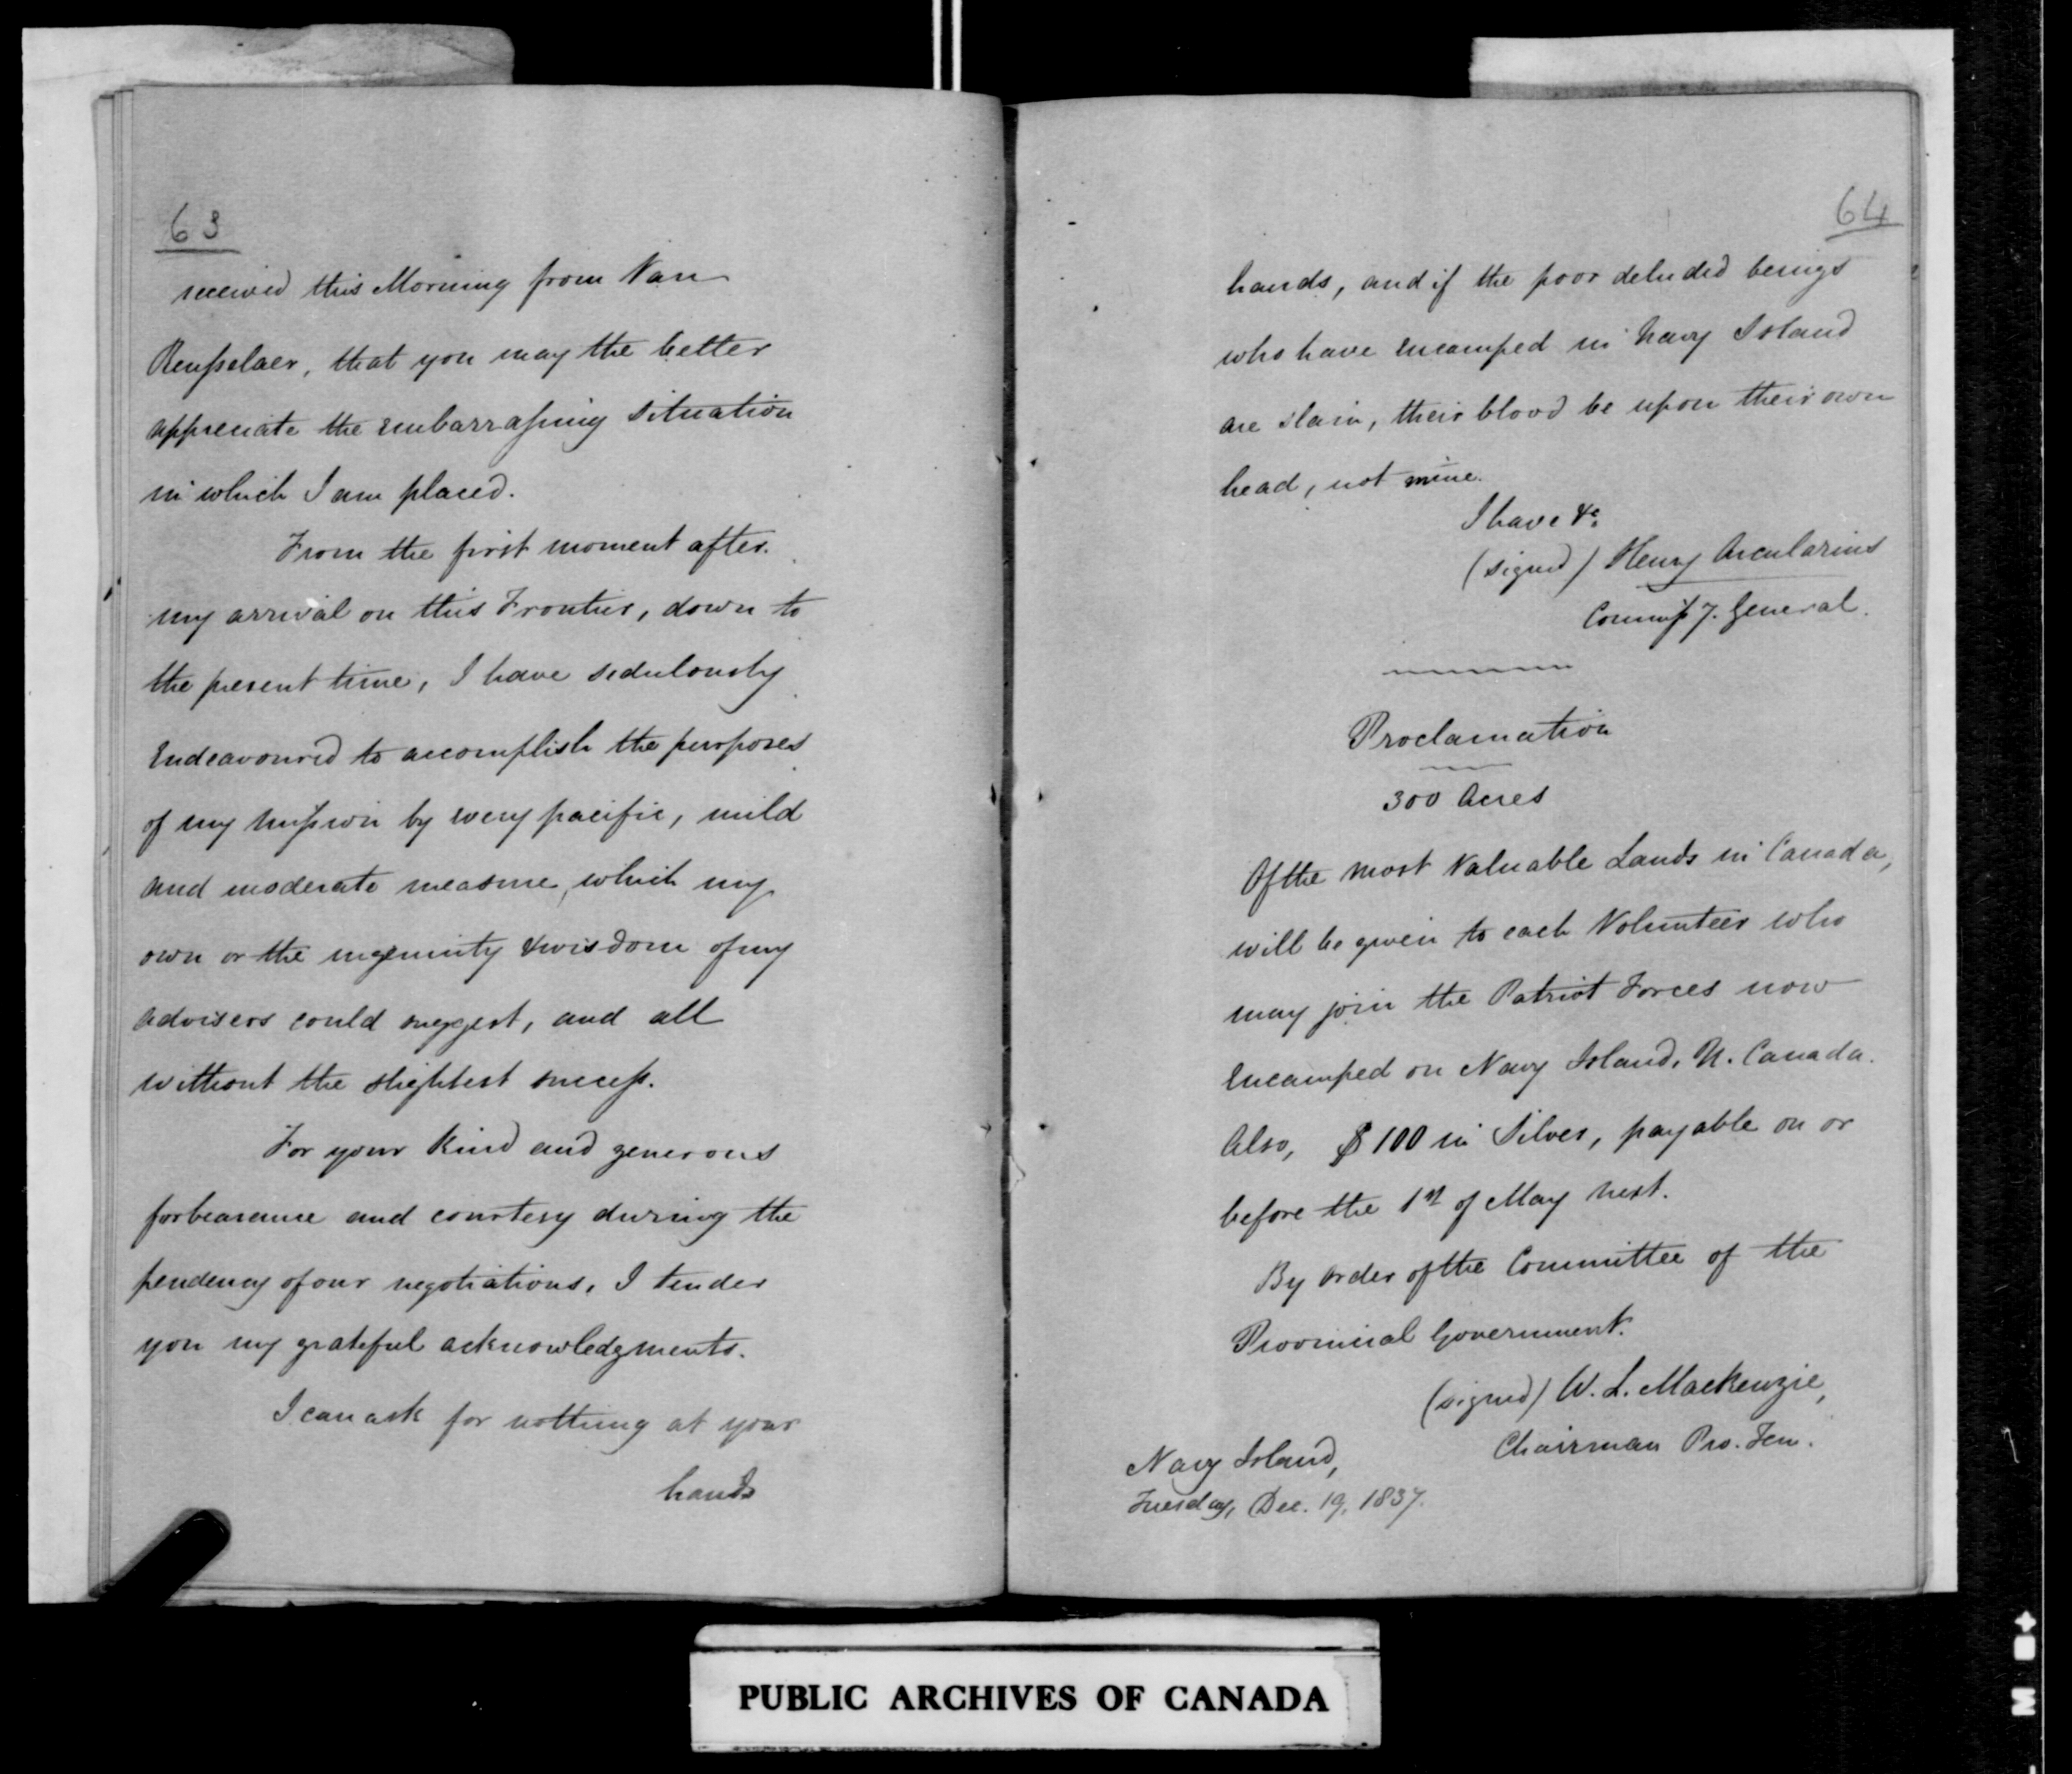 63
received this Morning from Van
Rensselaer, that you may the better
appreciate the embarrassing situation
in which I am placed.
From the first moment after
my arrival on this Frontier, down to
the present time, I have sedulously
Endeavoured to accomplish the purposes
of my mission by every pacific, mild
and moderate measure, which my
own or the ingenuity & wisdom of my
advisers could suggest, and all
without the slightest success.
For your kind and generous
forbearance and courtesy during the
pendency of our negotiations, I tender
you my grateful acknowledgments.
I can ask for nothing at your
hands
64
hands, and if the poor deluded beings
who have encamped in Navy Island
are slain, their blood be upon their own
head, not mine.
I have &c.
(signed) Henry Arcularius
Commissy. General.
Proclamation
300 Acres
Of the most Valuable Lands in Canada,
will be given to each Volunteer who
may join the Patriot Forces now
Encamped on Navy Island, U. Canada.
Also, $100 in Silver, payable on or
before the 1st of May next.
By order of the Committee of the
Provincial Government.
(signed) W. L. Mackenzie,
Chairman Pro. Tem.
Navy Island,
Tuesday, Dec. 19, 1837.
PUBLIC ARCHIVES OF CANADA